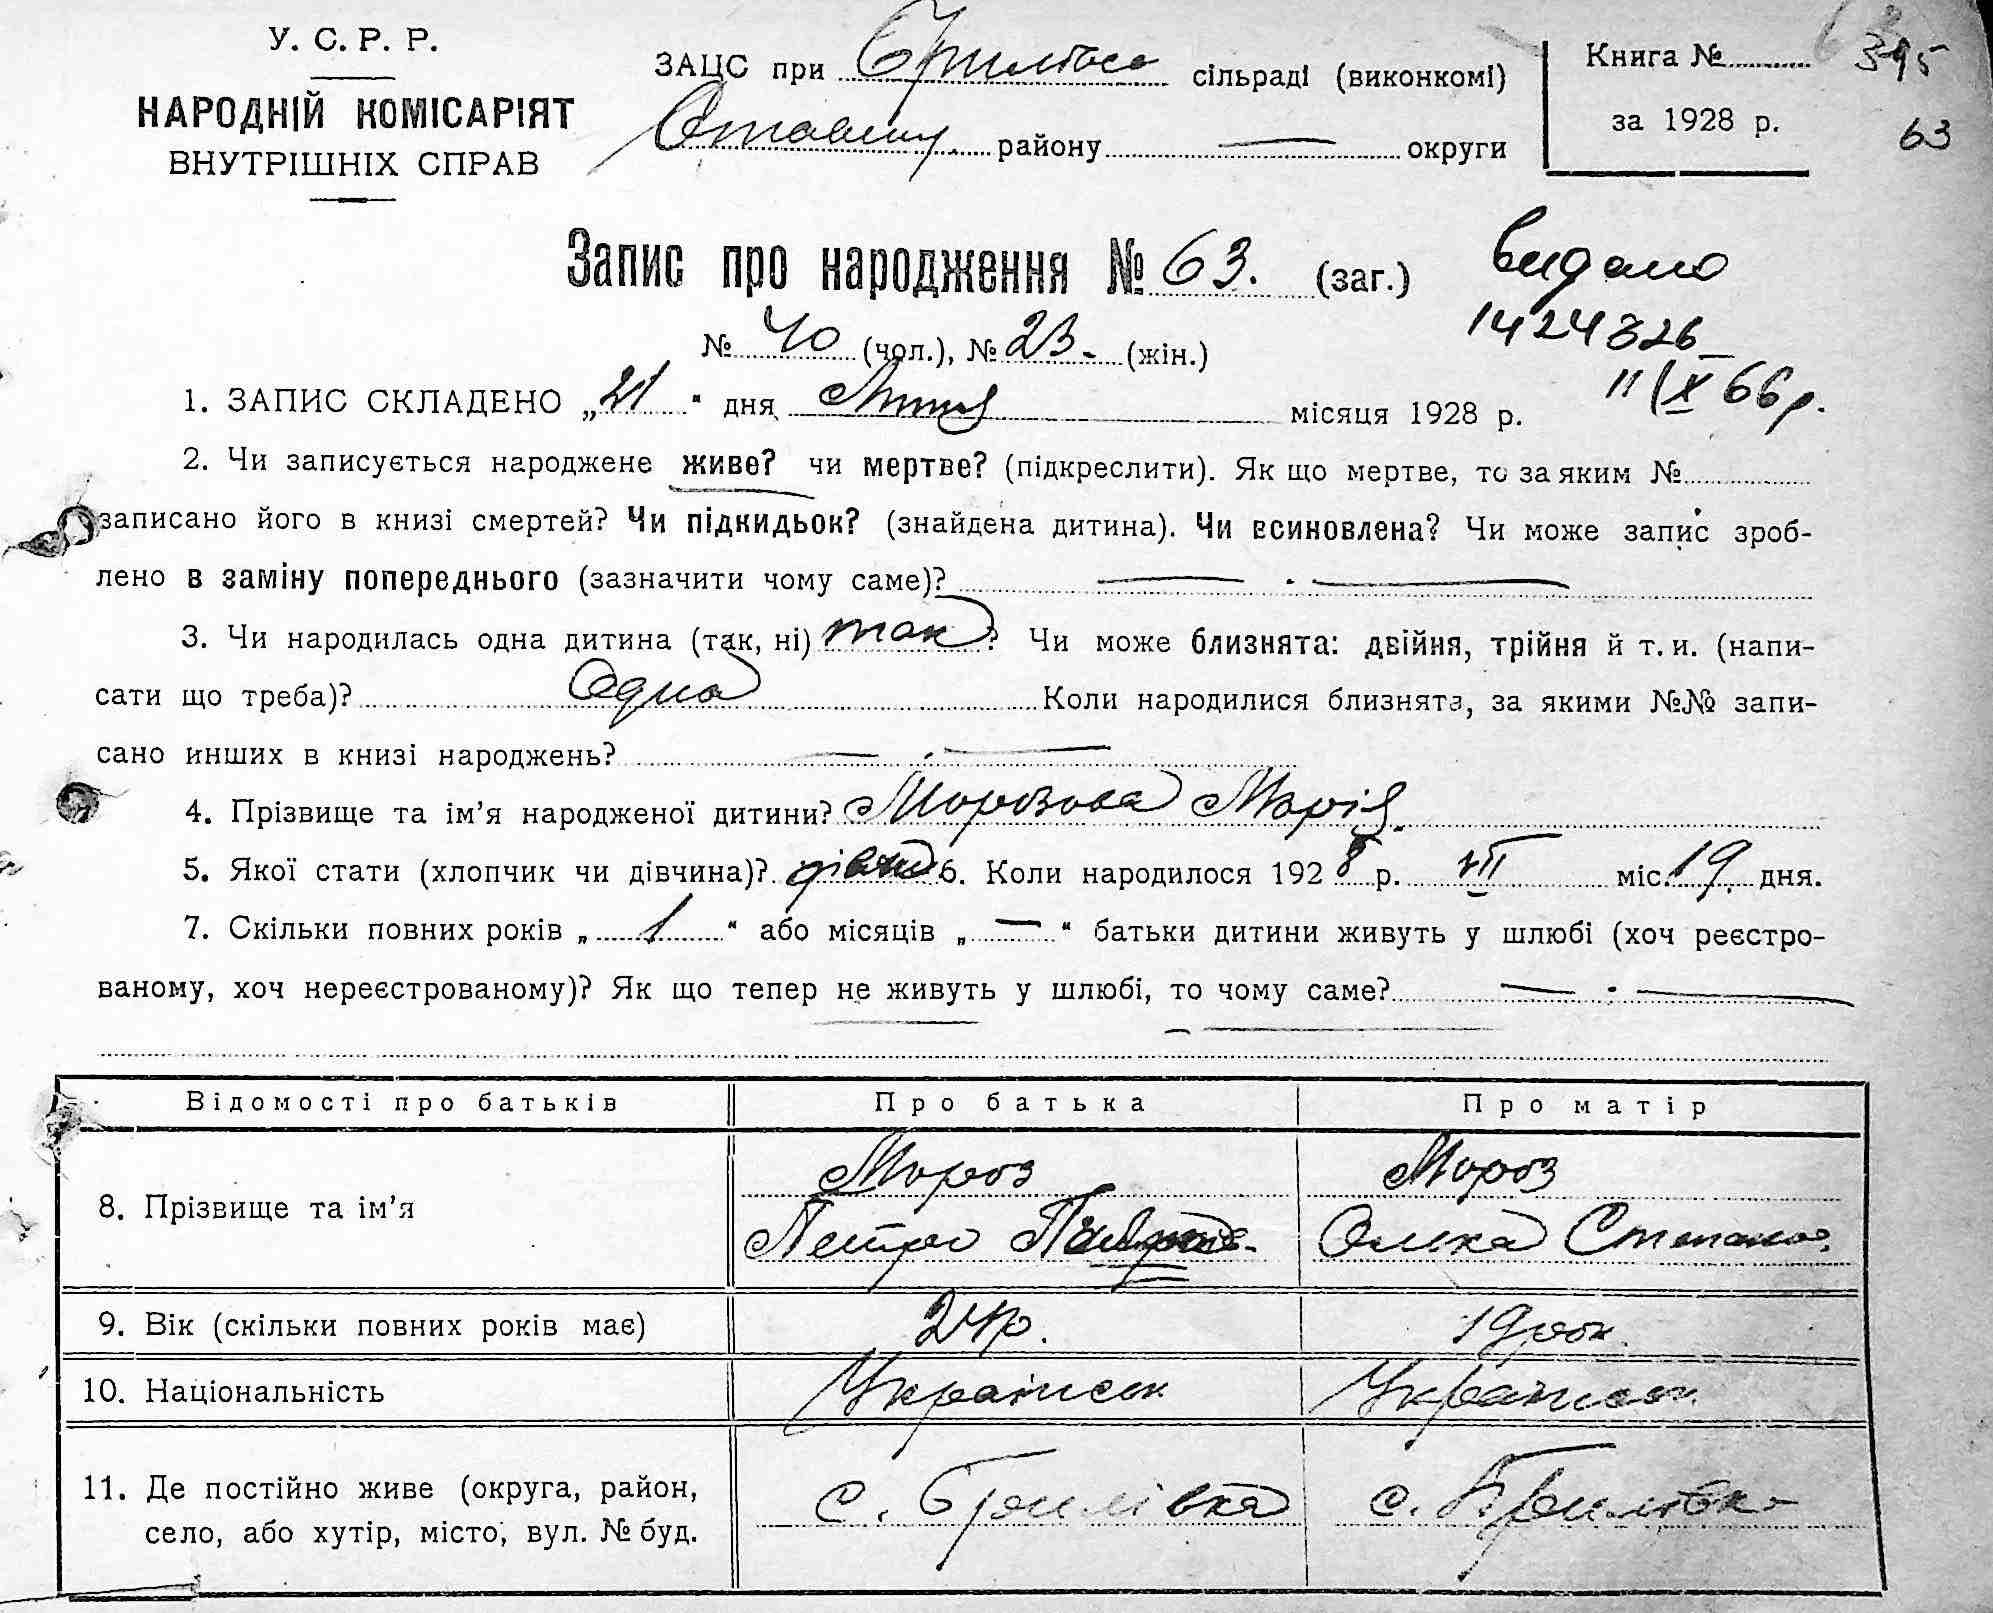 У. С. Р. Р.
НАРОДНІЙ КОМІСАРІЯТ
ВНУТРІШНІХ СПРАВ
ЗАЦС при Брилівск сільраді (виконкомі)
району — округи
Книга №
за 1928 р.
395
63
Запис про народження № 63. (заг.)
№ 40 (чол.), № 23. (жін.)
видано
1424326
11/X 66 р.
1. ЗАПИС СКЛАДЕНО „21“ дня Липня місяця 1928 р.
2. Чи записується народжене живе? чи мертве? (підкреслити). Як що мертве, то за яким №
записано його в книзі смертей? Чи підкидьок? (знайдена дитина). Чи всиновлена? Чи може запис зроб-
лено в заміну попереднього (зазначити чому саме)? — · —
3. Чи народилась одна дитина (так, ні) так? Чи може близнята: двійня, трійня й т. и. (напи-
сати що треба)? Одна Коли народилися близнята, за якими №№ запи-
сано инших в книзі народжень? — · —
4. Прізвище та ім’я народженої дитини? Морозова Марія.
5. Якої стати (хлопчик чи дівчина)? дівчина 6. Коли народилося 1928 р. VII міс. 19 дня.
7. Скільки повних років „1“ або місяців „—“ батьки дитини живуть у шлюбі (хоч реєстро-
ваному, хоч нереєстрованому)? Як що тепер не живуть у шлюбі, то чому саме? — · —
Відомості про батьків Про батька Про матір
8. Прізвище та ім’я Мороз Мороз
Петро Олека Степанов.
9. Вік (скільки повних років має) 24 р. 19 рок.
10. Національність Українськ Українськ.
11. Де постійно живе (округа, район, с. Брилівка с. Брилівка
село, або хутір, місто, вул. № буд.